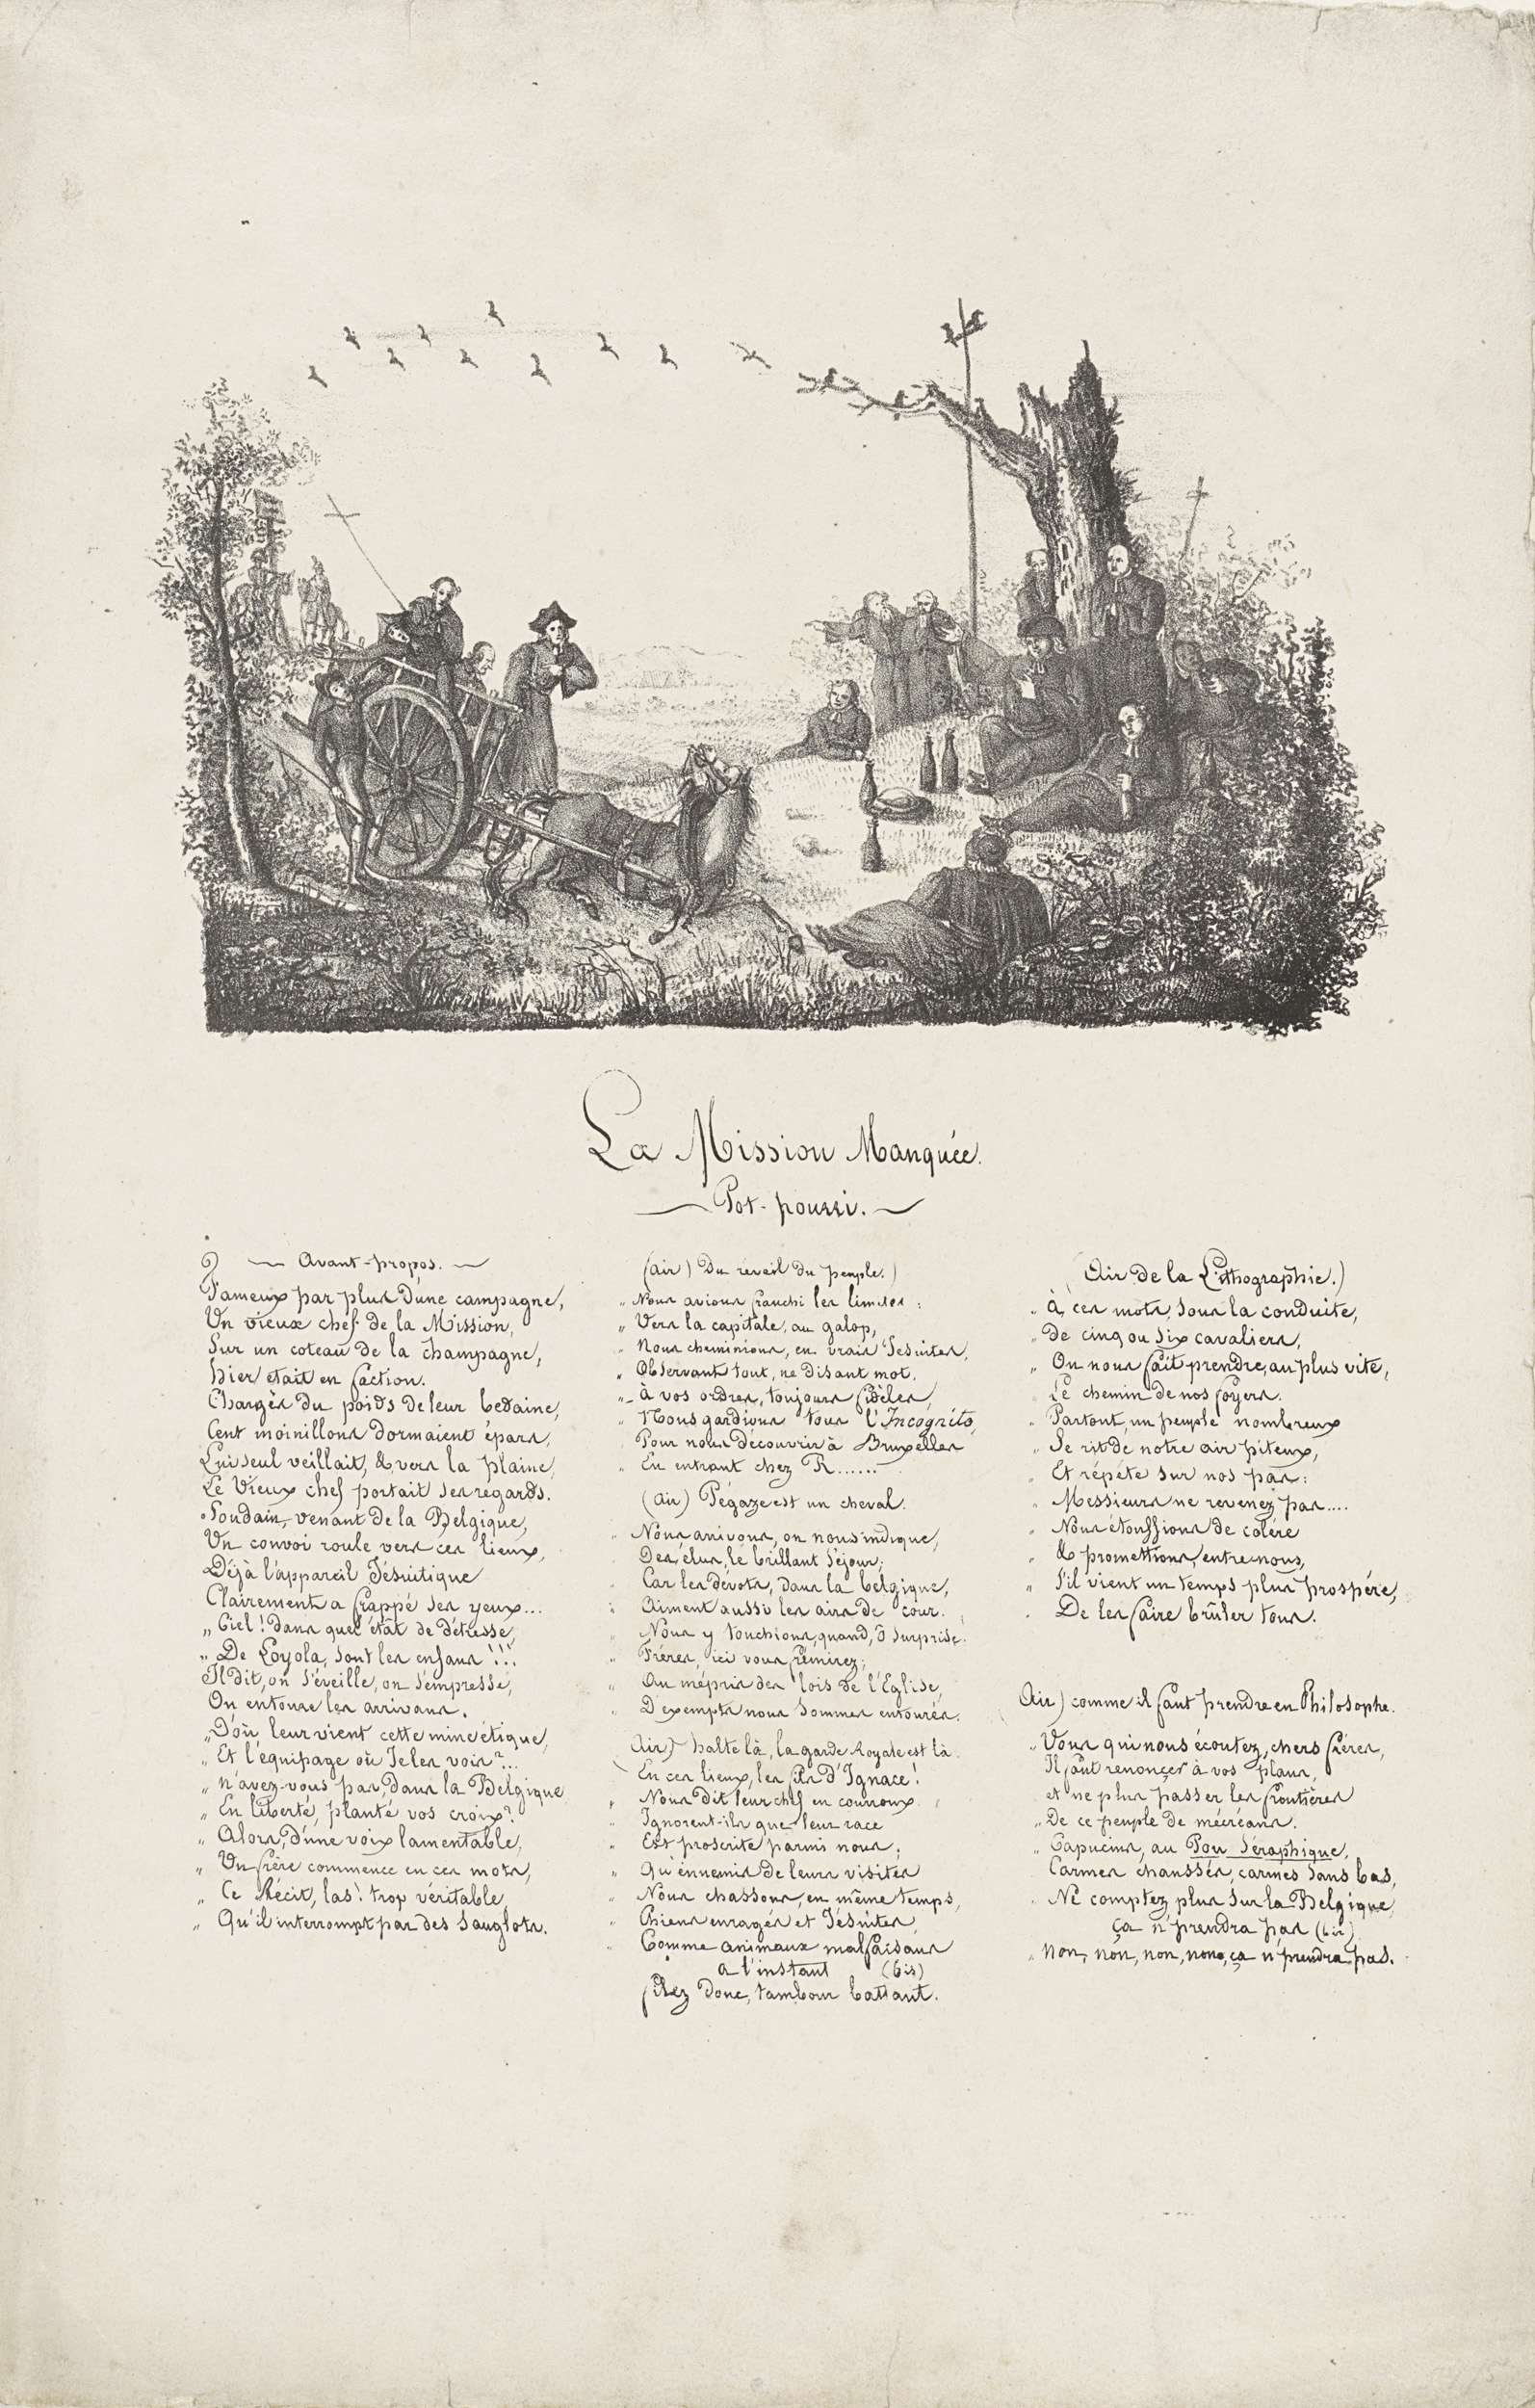 La Mission Manquée.
Pot-pourri.
Avant-propos.
Fameux par plus d'une campagne,
Un vieux chef de la Mission,
Sur un coteau de la Champagne,
hier etait en faction.
Chargés du poids de leur bedaine,
Cent moinillons dormaient épars,
Lui seul veillait, & vers la plaine,
Le Vieux chef portait ses regards.
Soudain, venant de la Belgique,
Un convoi roule vers ces lieux,
Déjà l'appareil Jésuitique
Clairement a frappé ses yeux...
„ Ciel! dans quel état de détresse,
„ De Loyola, sont les enfans!!!
Il dit, on s'éveille, on s'empresse,
On entoure les arrivans.
„ D'où leur vient cette mine étique,
„ Et l'équipage où Je les vois?...
„ n'avez-vous pas, Dans la Belgique
„ En liberté, planté vos croix?
„ Alors, d'une voix lamentable,
„ Un frère commence en ces mots,
„ Ce Récit, las! trop véritable
„ Qu'il interrompt par des sanglots.
(air) Du reveil du peuple.)
„ Nous avions franchi les limites;
„ Vers la capitale, au galop,
„ Nous cheminions, en vrais Jesuites,
„ Observant tout, ne disant mot.
„ à vos ordres, toujours fidèles,
„ Nous gardions tous l'Incognito,
Pour nous découvrir à Bruxelles
„ En entrant chez R......
(air) Pégaze est un cheval.
„ Nous arrivons, on nous indique,
Des élus, le brillant Séjour;
„ Car les dévots, Dans la belgique,
„ Aiment aussi les airs de cour.
„ Nous y touchions, quand, ô surprise:
„ Frères, ici vous frémirez;
„ Au mépris des lois de l'Eglise,
„ D'exempts nous sommes entourés.
Air) halte là, la garde Royale est là.
En ces lieux, les fils d'Ignace!
„ Nous dit leur chef en courroux
„ Ignorent-ils que leur race
„ Est proscrite parmi nous;
„ Qu'ennemis de leurs visites
„ Nous chassons, en même temps,
„ Chiens enragés et Jésuites,
„ Comme animaux malfaisans
a l'instant (bis)
filez Donc, tambour battant.
(Air de la Lithographie.)
„ à ces mots, sous la conduite,
„ de cinq ou six cavaliers,
„ On nous fait prendre, au plus vite,
Le chemin de nos foyers.
„ Partout, un peuple nombreux
„ Se rit de notre air piteux,
„ Et répéte sur nos pas:
„ Messieurs ne revenez pas....
„ Nous étouffions de colére
„ & promettions, entre nous,
„ S'il vient un temps plus prospére,
„ De les faire brûler tous.
Air) comme il faut prendre en Philosophe.
„ Vous qui nous écoutez, chers frères,
Il faut renoncer à vos plans,
et ne plus passer les frontières
„ De ce peuple de mécréans.
„ Capucins, au Pou Séraphique,
Carmes chaussés, carmes sans bas,
„ Ne comptez plus sur la Belgique,
ça n'prendra pas (bis)
„ non, non, non, non, ça n'prendra pas.